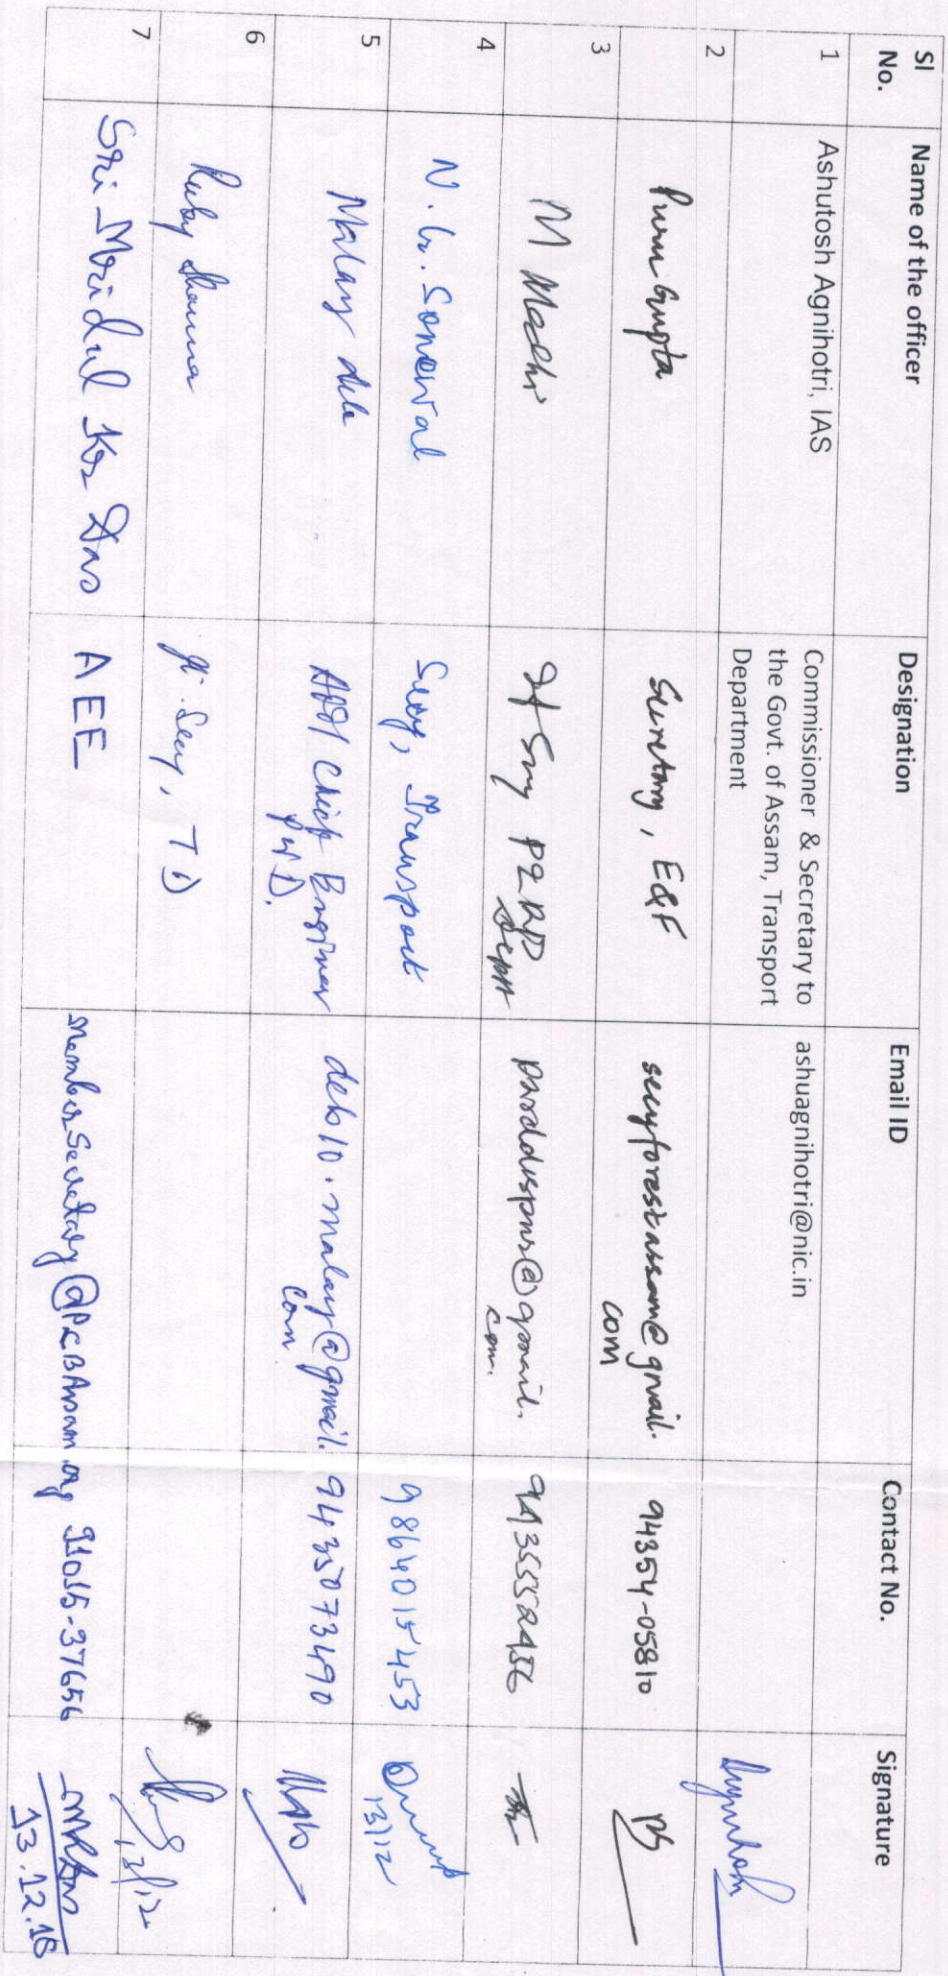 Sl No. Name of the officer Designation Email ID Contact No. Signature
1 Ashutosh Agnihotri, IAS Commissioner & Secretary to the Govt. of Assam, Transport Department ashuagnihotri@nic.in
2 Gupta Secretary, E&F secyforestassam@gmail.com 94354-05810
3 M P&RD Deptt @gmail.com.
4 N. Sonowal Secy, Transport 9864015453 13/12
5 Malay deb Addl Chief Engineer PWD. deb10.malay@gmail.com 9435073490
6 Ruby Sharma Jt. Secy, TD 13/12
7 Sri Mridul Kr Das AEE MemberSecretary@PCBAssam.org 91015-37656 13.12.18